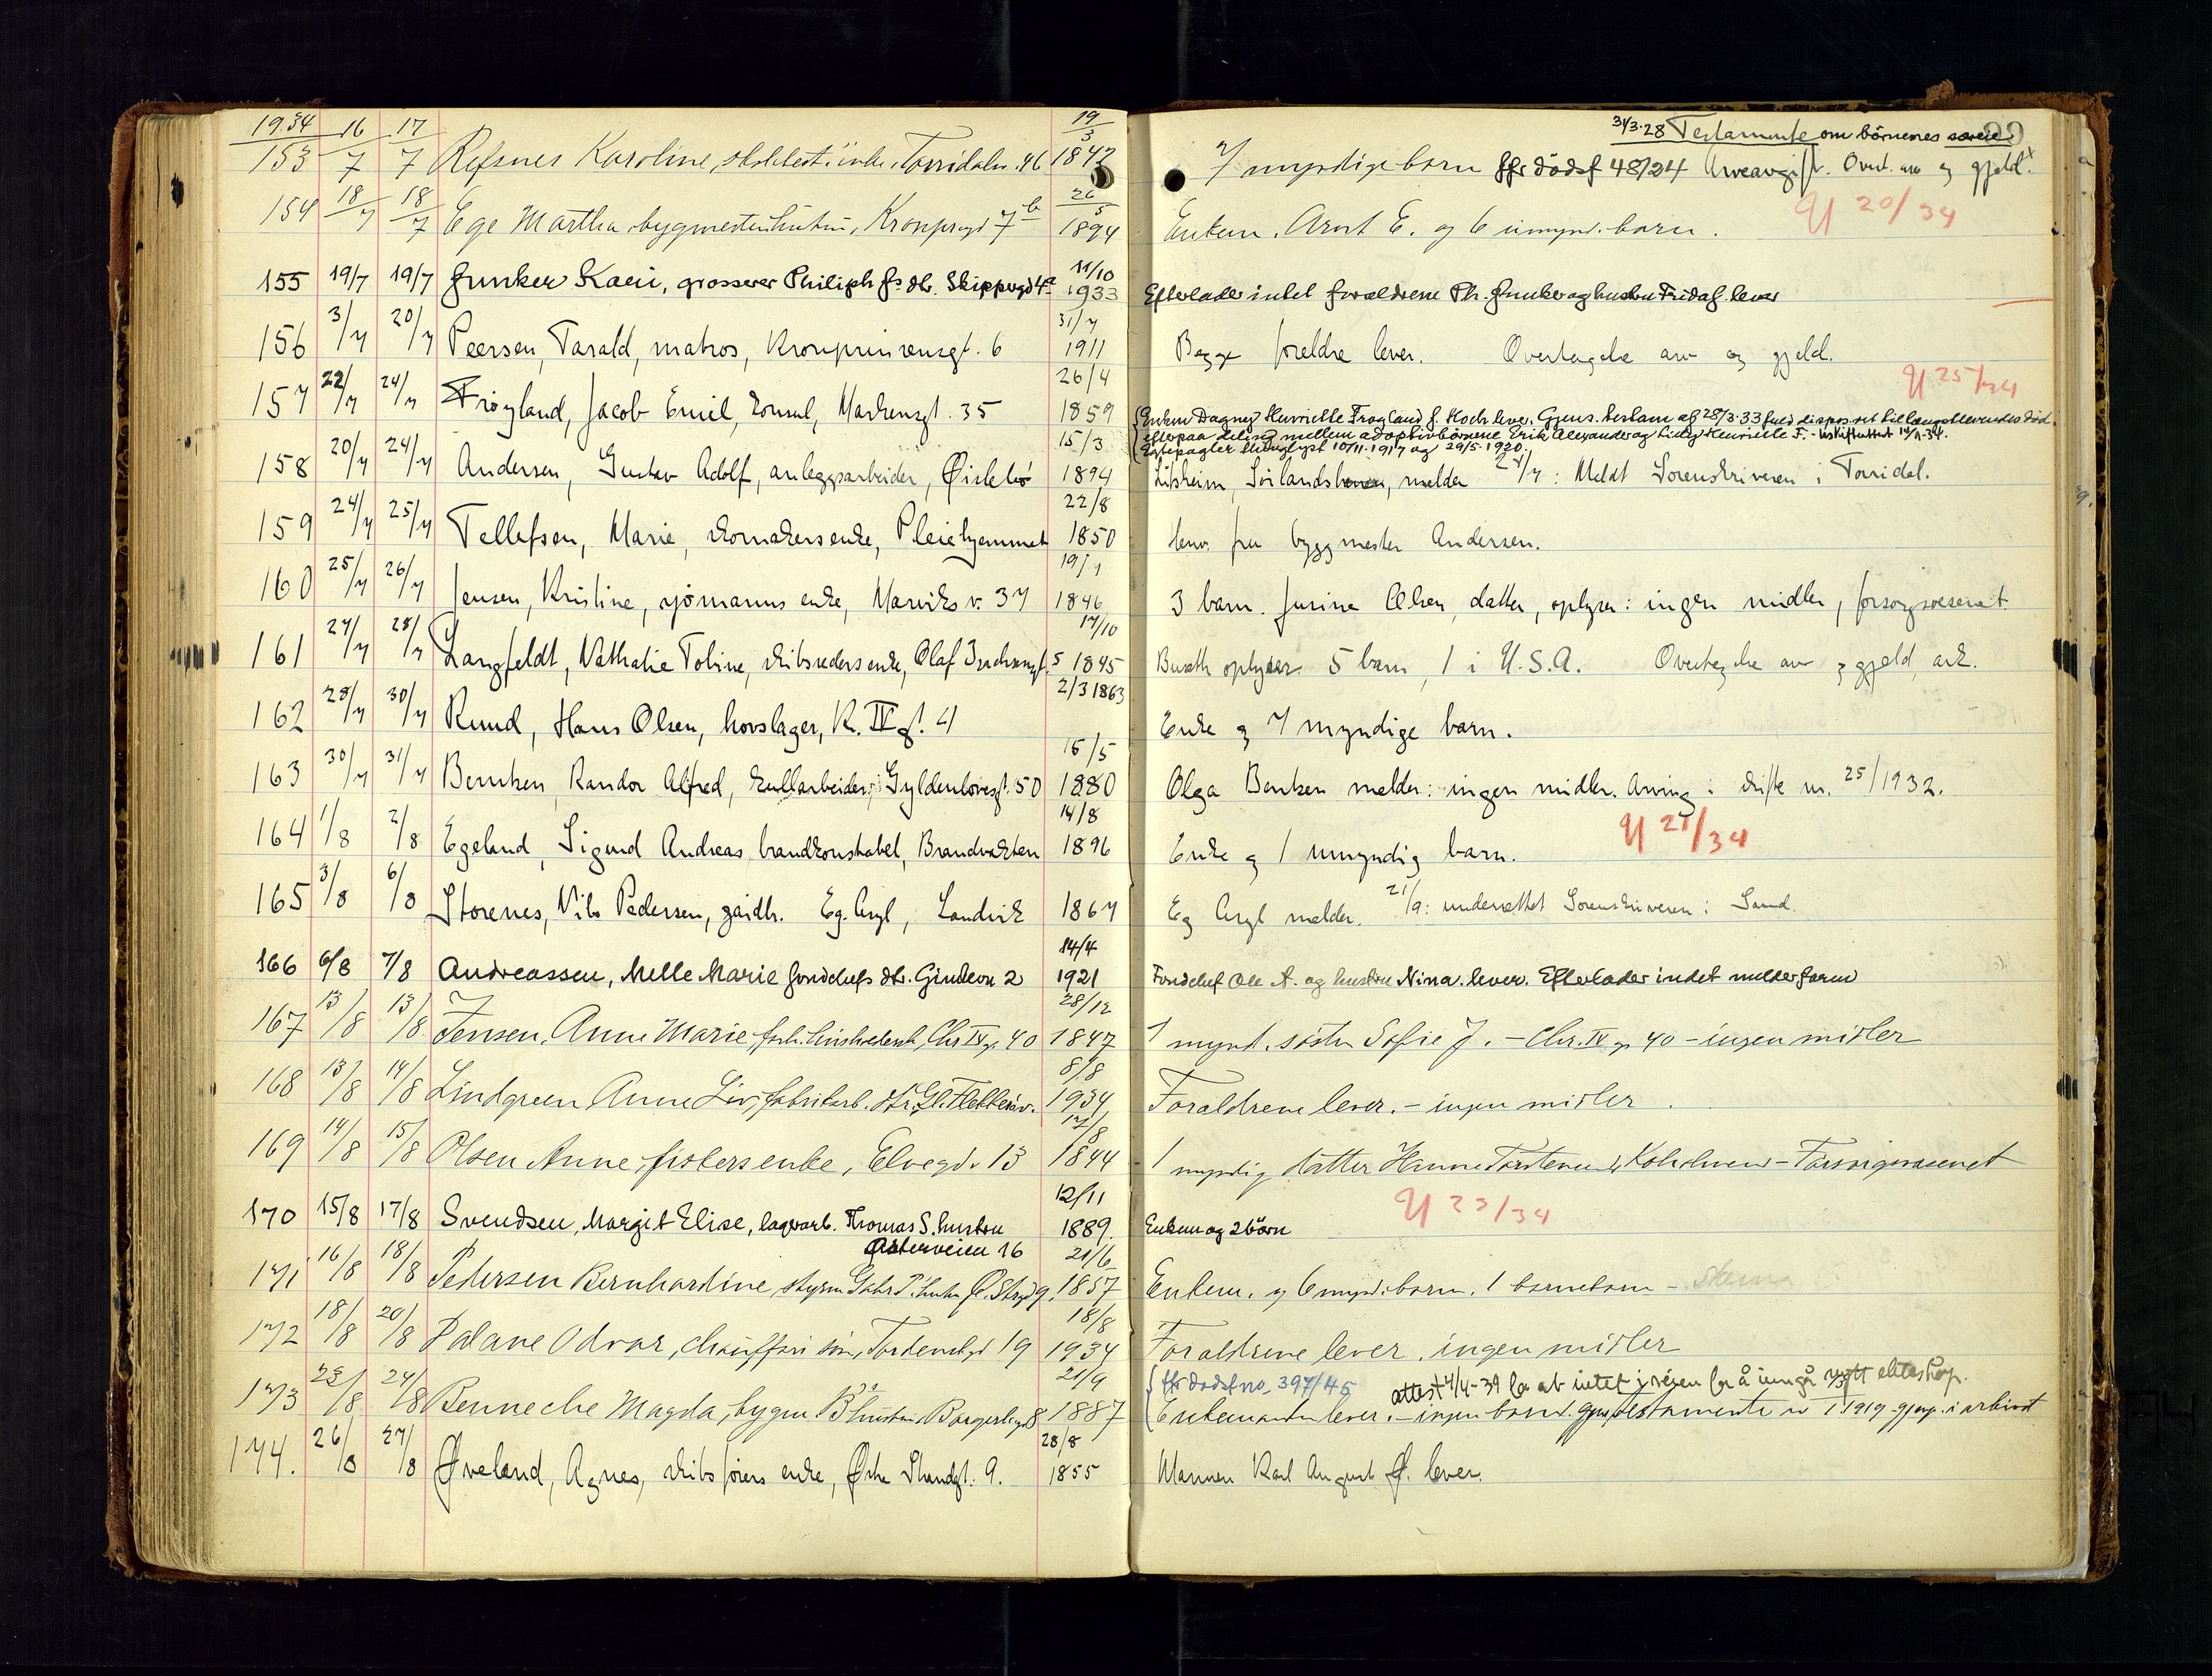 1934 16 17 19
153 7 7 Refsnes Karoline, Torridalsv. 46 3 1842
154 18/7 18/7 Ege Martha, bygmester hustru, Kronprgd 7 b 26/5 1894
155 19/7 19/7 Junker Kaei, grosserer Philiph Js dtr. Skippergd 4a 11/10 1933
156 3/7 20/7 Peersen, Tarald, matros, Kronprinsensgt. 6 31/7 1911
157 22/7 24/7 Frøyland, Jacob Emil, konsul, Markensgt. 35 26/4 1859
158 20/7 24/7 Andersen, Gustav Adolf, anleggsarbeider, Øislebø 15/3 1894
159 24/7 25/7 Tellefsen, Marie, skomakersenke, Pleiehjemmet 22/8 1850
160 25/7 26/7 Jensen, Kristine, sjømanns enke, Marviks v. 37 19/1 1846
161 27/7 28/7 Langfeldt, Nathalie Toline, skibsreders enke, Olaf 5 17/10 1845
162 28/7 30/7 Ruud, Hans Olsen, hovslager, K. IV gt. 4 2/3 1863
163 30/7 31/7 Bentsen, Randor Alfred, Gyldenløvesgt. 50 15/5 1880
164 1/8 2/8 Egeland, Sigurd Andreas, brandkonstabel, Brandvakten 14/8 1896
165 3/8 6/8 Storenes, Nils Pedersen, gårdbr. Eg. Asyl, Landvik 1867
166 6/8 7/8 Andreassen, Melle Marie fondchefs dtr. Gimleveien 2 14/4 1921
167 13/8 13/8 Jensen, Anne Marie, Chr IV g. 40 28/12 1847
168 13/8 14/8 Lindgreen Anne Liv, fabrikarb. dtr. Gl. Flekkerøv. 8/8 1934
169 14/8 15/8 Olsen Anne, fiskers enke, Elvegd. 13 /8 1844
170 15/8 17/8 Svendsen, Margit Elise, lagerarb. Thomas S. hustru 12/11 1889.
Østerveien 16
171 16/8 18/8 Pedersen Bernhardine, styrm. hustru Ø. Strgd 9. 21/6 1857
172 18/8 20/8 Palane Odvar, chauffør søn, Tordenskgd 19 18/8 1934
173 23/8 24/8 Benneche Magda, bygm. B's hustru, 8 21/9 1887
174. 26/8 27/8 Øveland, Agnes, skibsførers enke, Østre Strandgt. 9. 28/8 1855
31/3.28 Testamente om børnenes særeie
7 myndige barn jfr dødsf 48/24 Arveavgift. Overt. arv og gjeld.
U 20/34
Enkem. Arnt E. og 6 umynd. barn.
Efterlader intet forældrene Ph. Junker og hustru Frida J. lever
Begge foreldre lever. Overtagelse arv og gjeld.
U 25/34
Enken Dagney Henriette Frøyland f. Koch lever. Gjens. testam af 28/3.33 fuld dispos.ret til længstlevendes død.
efterpaa deling mellem adoptivbørnene Erik Alexander og Lilly Henriette F. -
Egtepagter tinglyst 10/11.1917 og 29/5.1920.
Lilsheim, melder 24/7: Meldt Sorenskriveren i Torridal.
fru byggmester Andersen.
3 barn. Jusine Olsen, datter, oplyser: ingen midler, forsorgsvesenet
oplyser 5 barn, 1 i U.S.A. Overtagelse arv og gjeld, ark.
Enke og 7 myndige barn.
Olga Bentsen melder: ingen midler. Arving i skifte nr. 25/1932.
U 21/34
Enke og 1 umyndig barn.
Eg Asyl melder. 21/9: underrettet Sorenskriveren i Sand.
Fondchef Ole A. og hustru Nina. lever. Efterlader intet
1 mynd. søster Sofie J. - Chr. IV g. 40 - ingen midler
Forældrene lever. - ingen midler
1 myndig datter Hanne - Forsorgsvæsenet
U 23/34
Enkem og 2 børn
Enkem. og 6 mynd. barn. 1 barnebarn -
Forældrene lever. ingen midler
jfr dødsf no. 397/45 attest 4/4-39 for at intet i veien for å inngå nytt ekteskap.
Enkemanden lever. - ingen barn. gjens. testamente 1919 i arkivet
Mannen Karl August Ø. lever.